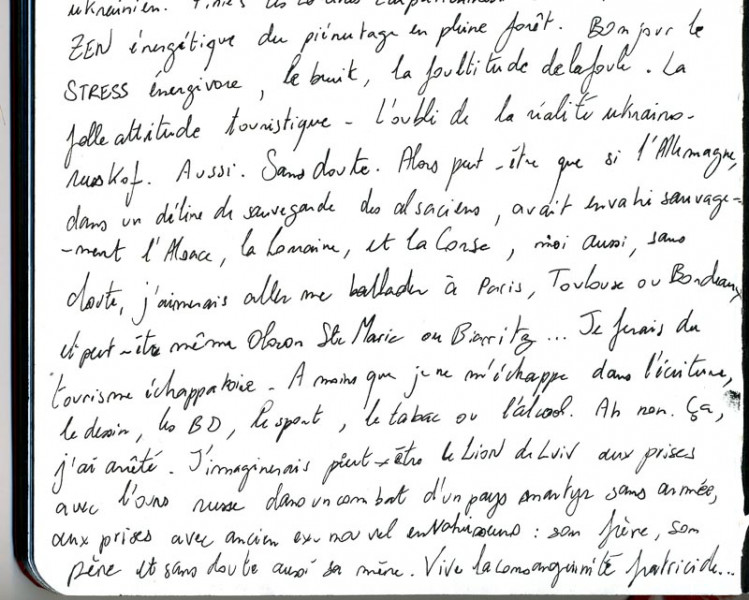 ukrainien.
ZEN énergétique du piémutage en pleine forêt. Bonjour le
STRESS énergivore, le bruit, la foultitude de la foule. La
folle attitude touristique - L'oubli de la réalité ukraino-
ruskof. Aussi. Sans doute. Alors peut-être que si l'Allemagne,
dans un délire de sauvegarde des alsaciens, avait envahi sauvage-
-ment l'Alsace, la Lorraine, et la Corse, moi aussi, sans
doute, j'aimerais aller me ballader à Paris, Toulouse ou Bordeaux,
et peut-être même Oloron Ste Marie ou Biarritz... Je ferais du
tourisme échappatoire - A moins que je ne m'échappe dans l'écriture,
le dessin, les BD, le sport, le tabac ou l'alcool. Ah non. Ça,
j'ai arrêté. J'imaginerais peut-être le Lion de Lviv aux prises
avec l'ours russe dans un combat d'un pays martyr sans armée,
aux prises avec ancien ex nouvel envahisseurs : son frère, son
père et sans doute aussi sa mère. Vive la consanguinité patricide...